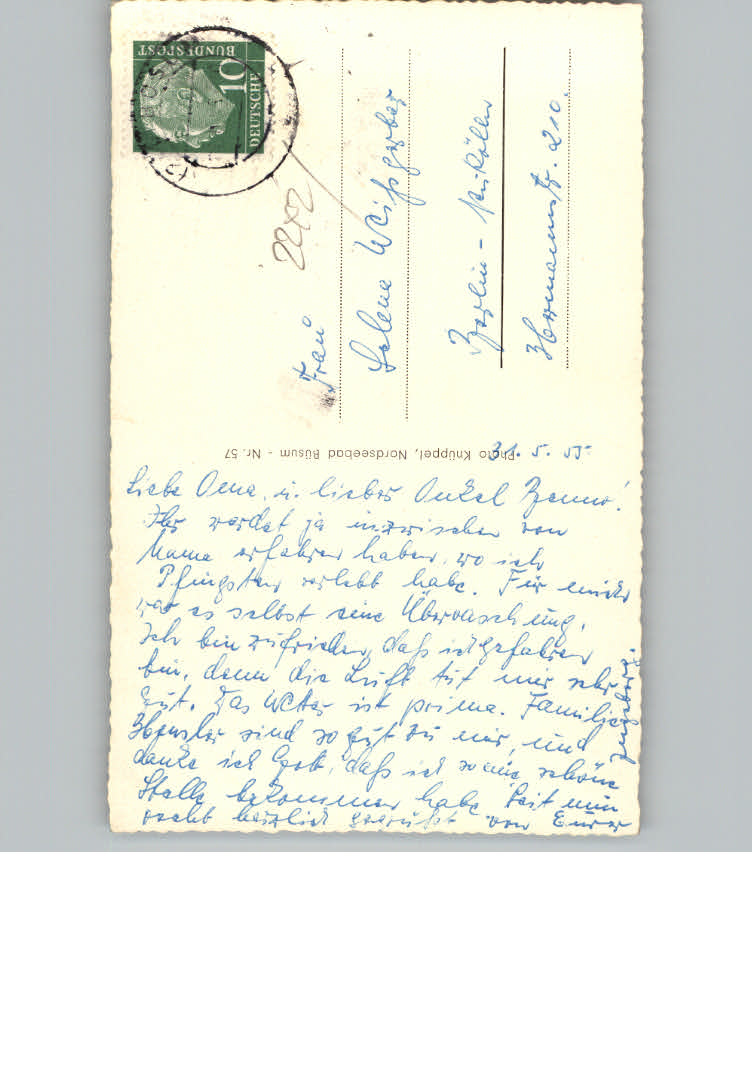 DEUTSCHE
BUNDESPOST
10
2242
Frau
Helene Weißgerber
Berlin - Neukölln
Hermannstr. 210.
Photo Knüppel, Nordseebad Büsum - Nr. 57
31. 5. 55
Liebe Oma, u. lieber Onkel Benno!
Ihr werdet ja inzwischen von
Mama erfahren haben, wo ich
Pfingsten verlebt habe. Für mich
war es selbst eine Überraschung.
Ich bin zufrieden, daß ich gefahren
bin, denn die Luft tut mir sehr
gut. Das Wetter ist prima. Familie
sind so gut zu mir, und
danke ich Gott, daß ich so eine schöne
Stelle bekommen habe. Seit nun
recht herzlich gegrüßt von Eurer
Ingeborg.